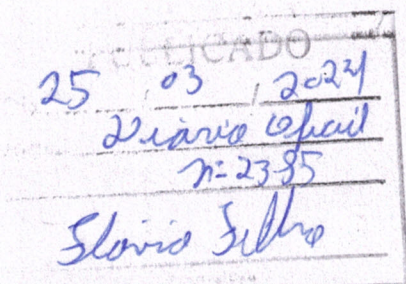 PUBLICADO
25, 03, 2024
Diário Oficial
nº 2385
Flávio Filho